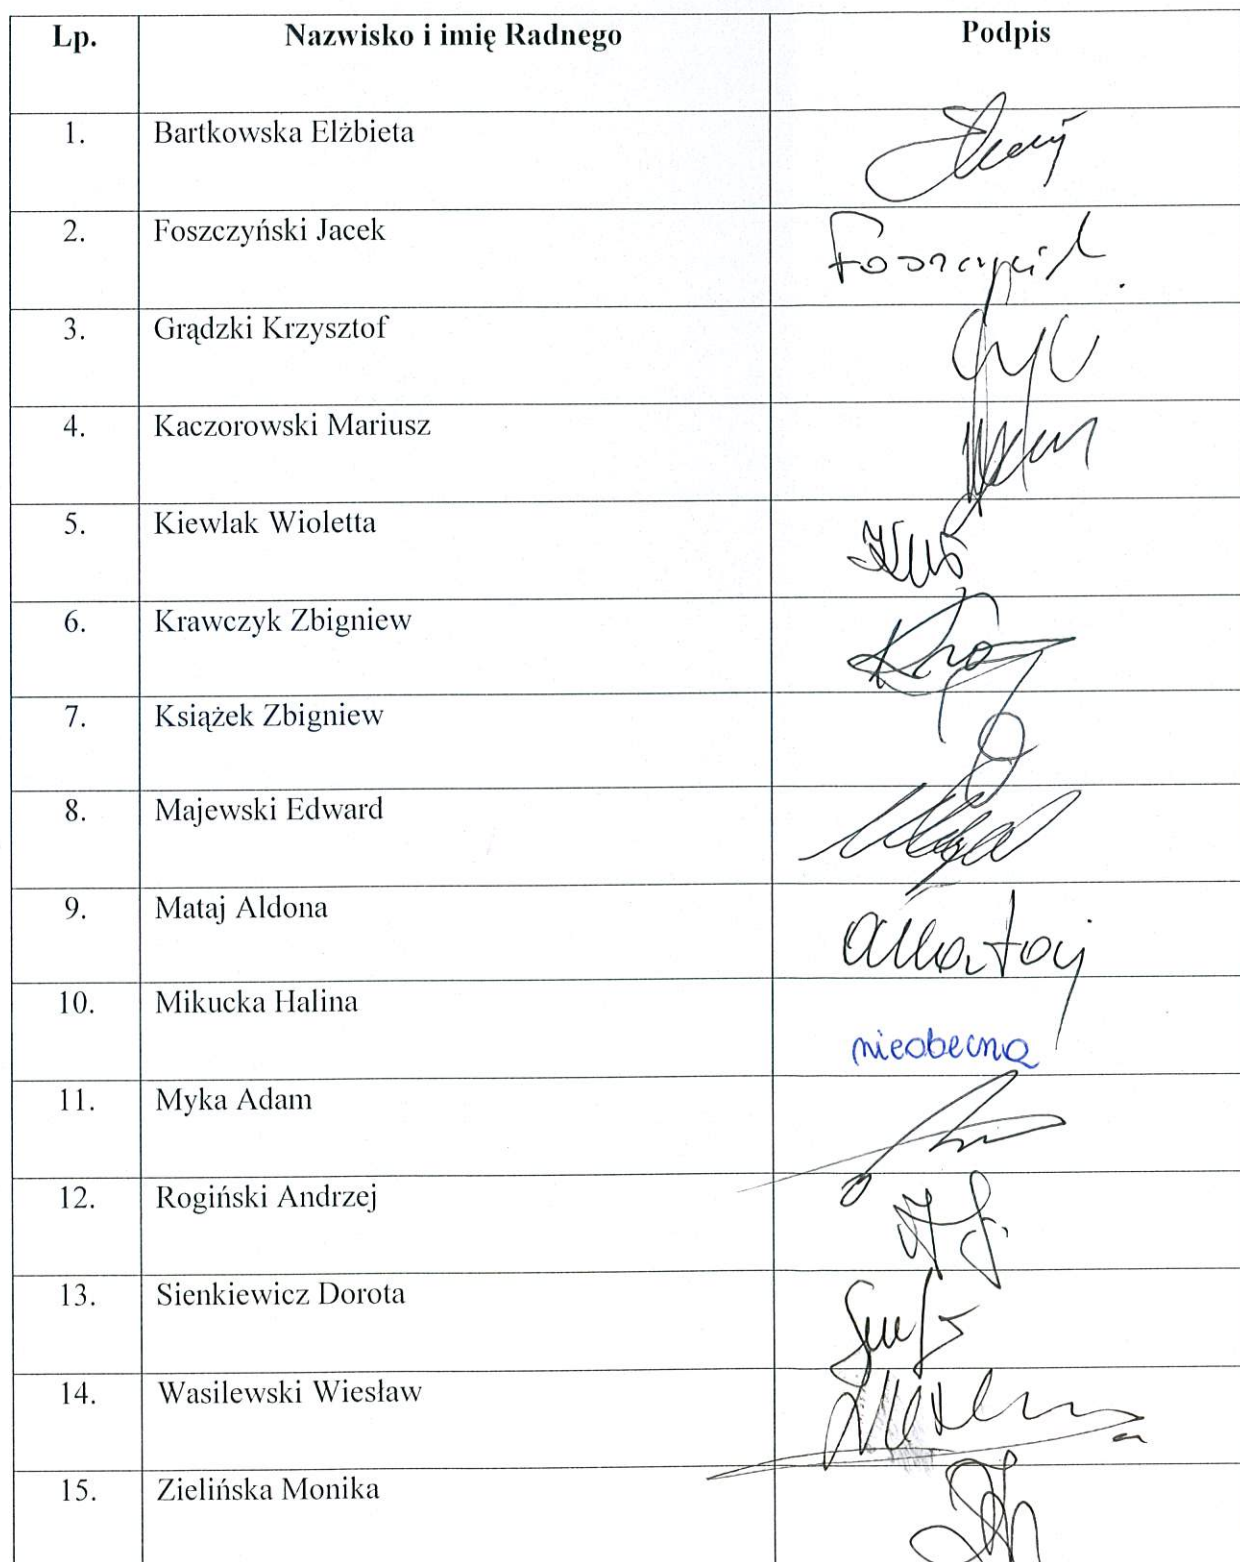 Lp. Nazwisko i imię Radnego Podpis
1. Bartkowska Elżbieta
2. Foszczyński Jacek
3. Grądzki Krzysztof
4. Kaczorowski Mariusz
5. Kiewlak Wioletta
6. Krawczyk Zbigniew
7. Książek Zbigniew
8. Majewski Edward
9. Mataj Aldona AMataj
10. Mikucka Halina nieobecna
11. Myka Adam
12. Rogiński Andrzej
13. Sienkiewicz Dorota
14. Wasilewski Wiesław
15. Zielińska Monika